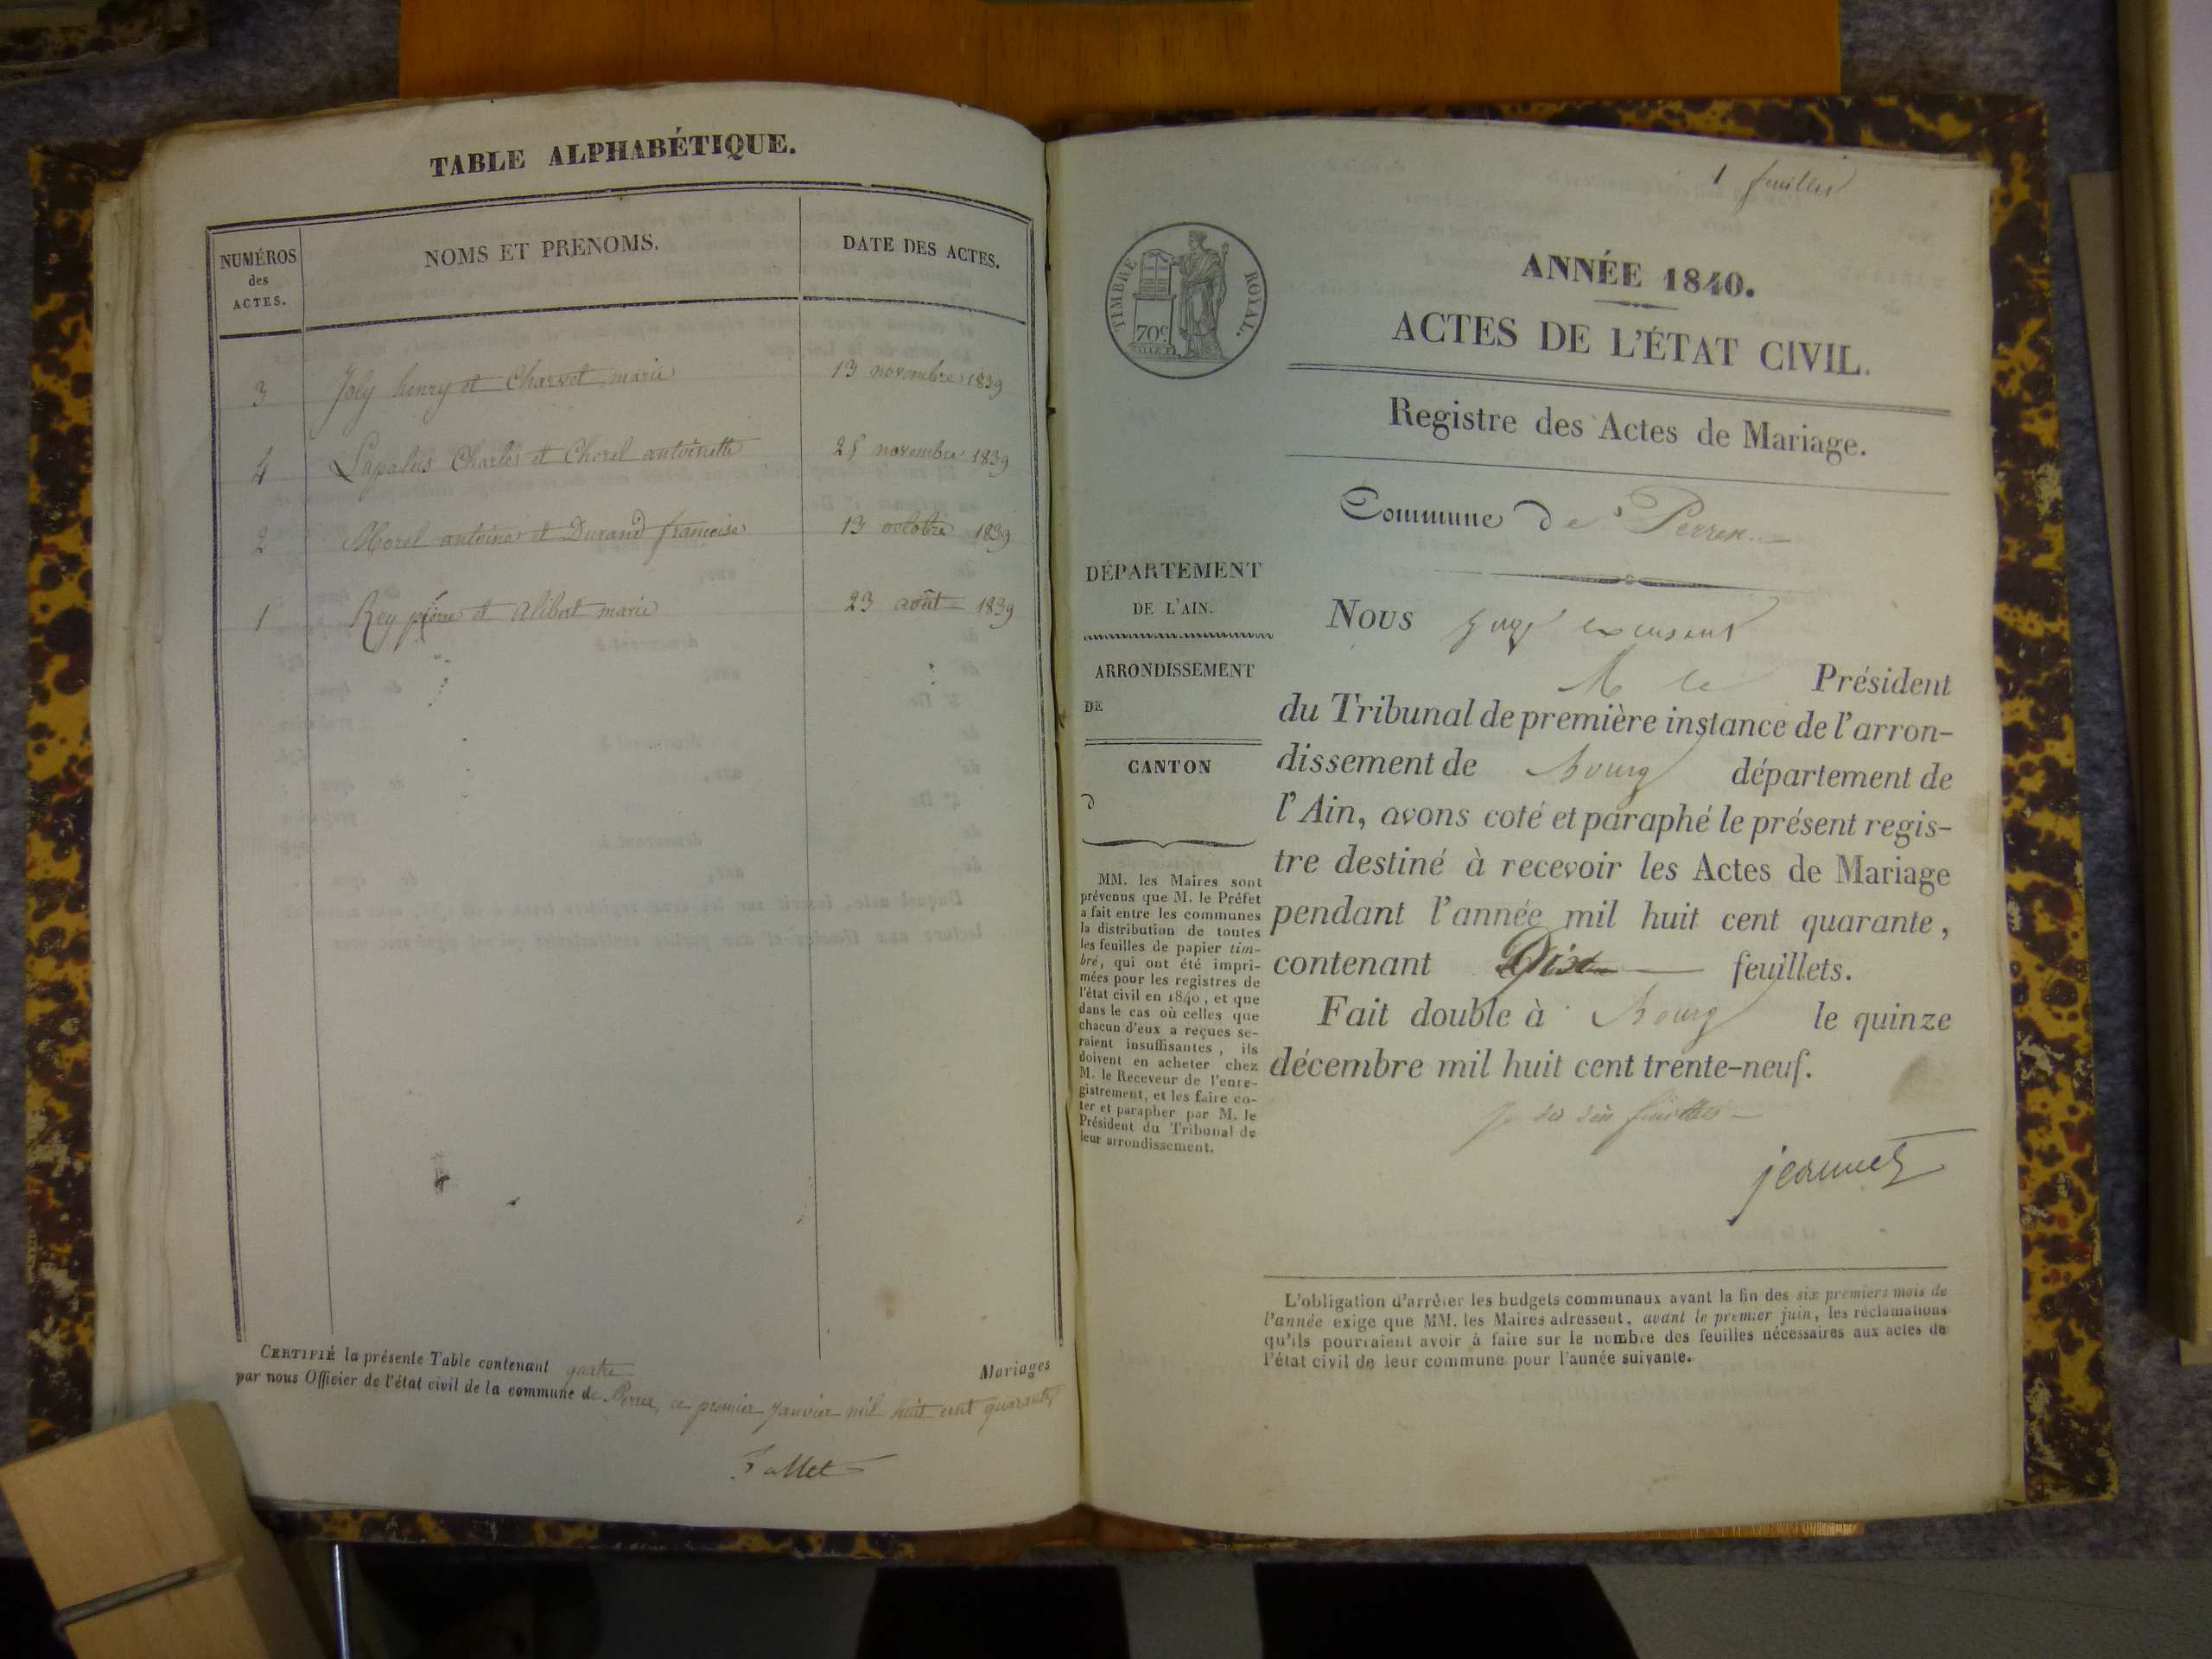 TABLE ALPHABÉTIQUE.
NUMÉROS
des
ACTES.
NOMS ET PRENOMS.
DATE DES ACTES.
3 Joly henry et Charvet marie 13 novembre 1839
4 Lapalus Charles et Chorel antoinette 25 novembre 1839
2 Morel antoine et Durand françoise 13 octobre 1839
1 Rey pierre et alibert marie 23 août 1839
CERTIFIÉ la présente Table contenant quatre Mariages
par nous Officier de l'état civil de la commune de Perrex, ce premier janvier mil huit cent quarante
1 feuillet
TIMBRE ROYAL.
70c
ANNÉE 1840.
ACTES DE L'ÉTAT CIVIL.
Registre des Actes de Mariage.
Commune de Perrex
DÉPARTEMENT
DE L'AIN.
ARRONDISSEMENT
DE
CANTON
D
MM. les Maires sont
prévenus que M. le Préfet
a fait entre les communes
la distribution de toutes
les feuilles de papier tim-
bré, qui ont été impri-
mées pour les registres de
l'état civil en 1840, et que
dans le cas où celles que
chacun d'eux a reçues se-
raient insuffisantes, ils
doivent en acheter chez
M. le Receveur de l'enre-
gistrement, et les faire co-
ter et parapher par M. le
Président du Tribunal de
leur arrondissement.
Nous juge
M le Président
du Tribunal de première instance de l'arron-
dissement de Bourg département de
l'Ain, avons coté et paraphé le présent regis-
tre destiné à recevoir les Actes de Mariage
pendant l'année mil huit cent quarante,
contenant Dix feuillets.
Fait double à Bourg le quinze
décembre mil huit cent trente-neuf.
jeannet
L'obligation d'arrêter les budgets communaux avant la fin des six premiers mois de
l'année exige que MM. les Maires adressent, avant le premier juin, les réclamations
qu'ils pourraient avoir à faire sur le nombre des feuilles nécessaires aux actes de
l'état civil de leur commune pour l'année suivante.